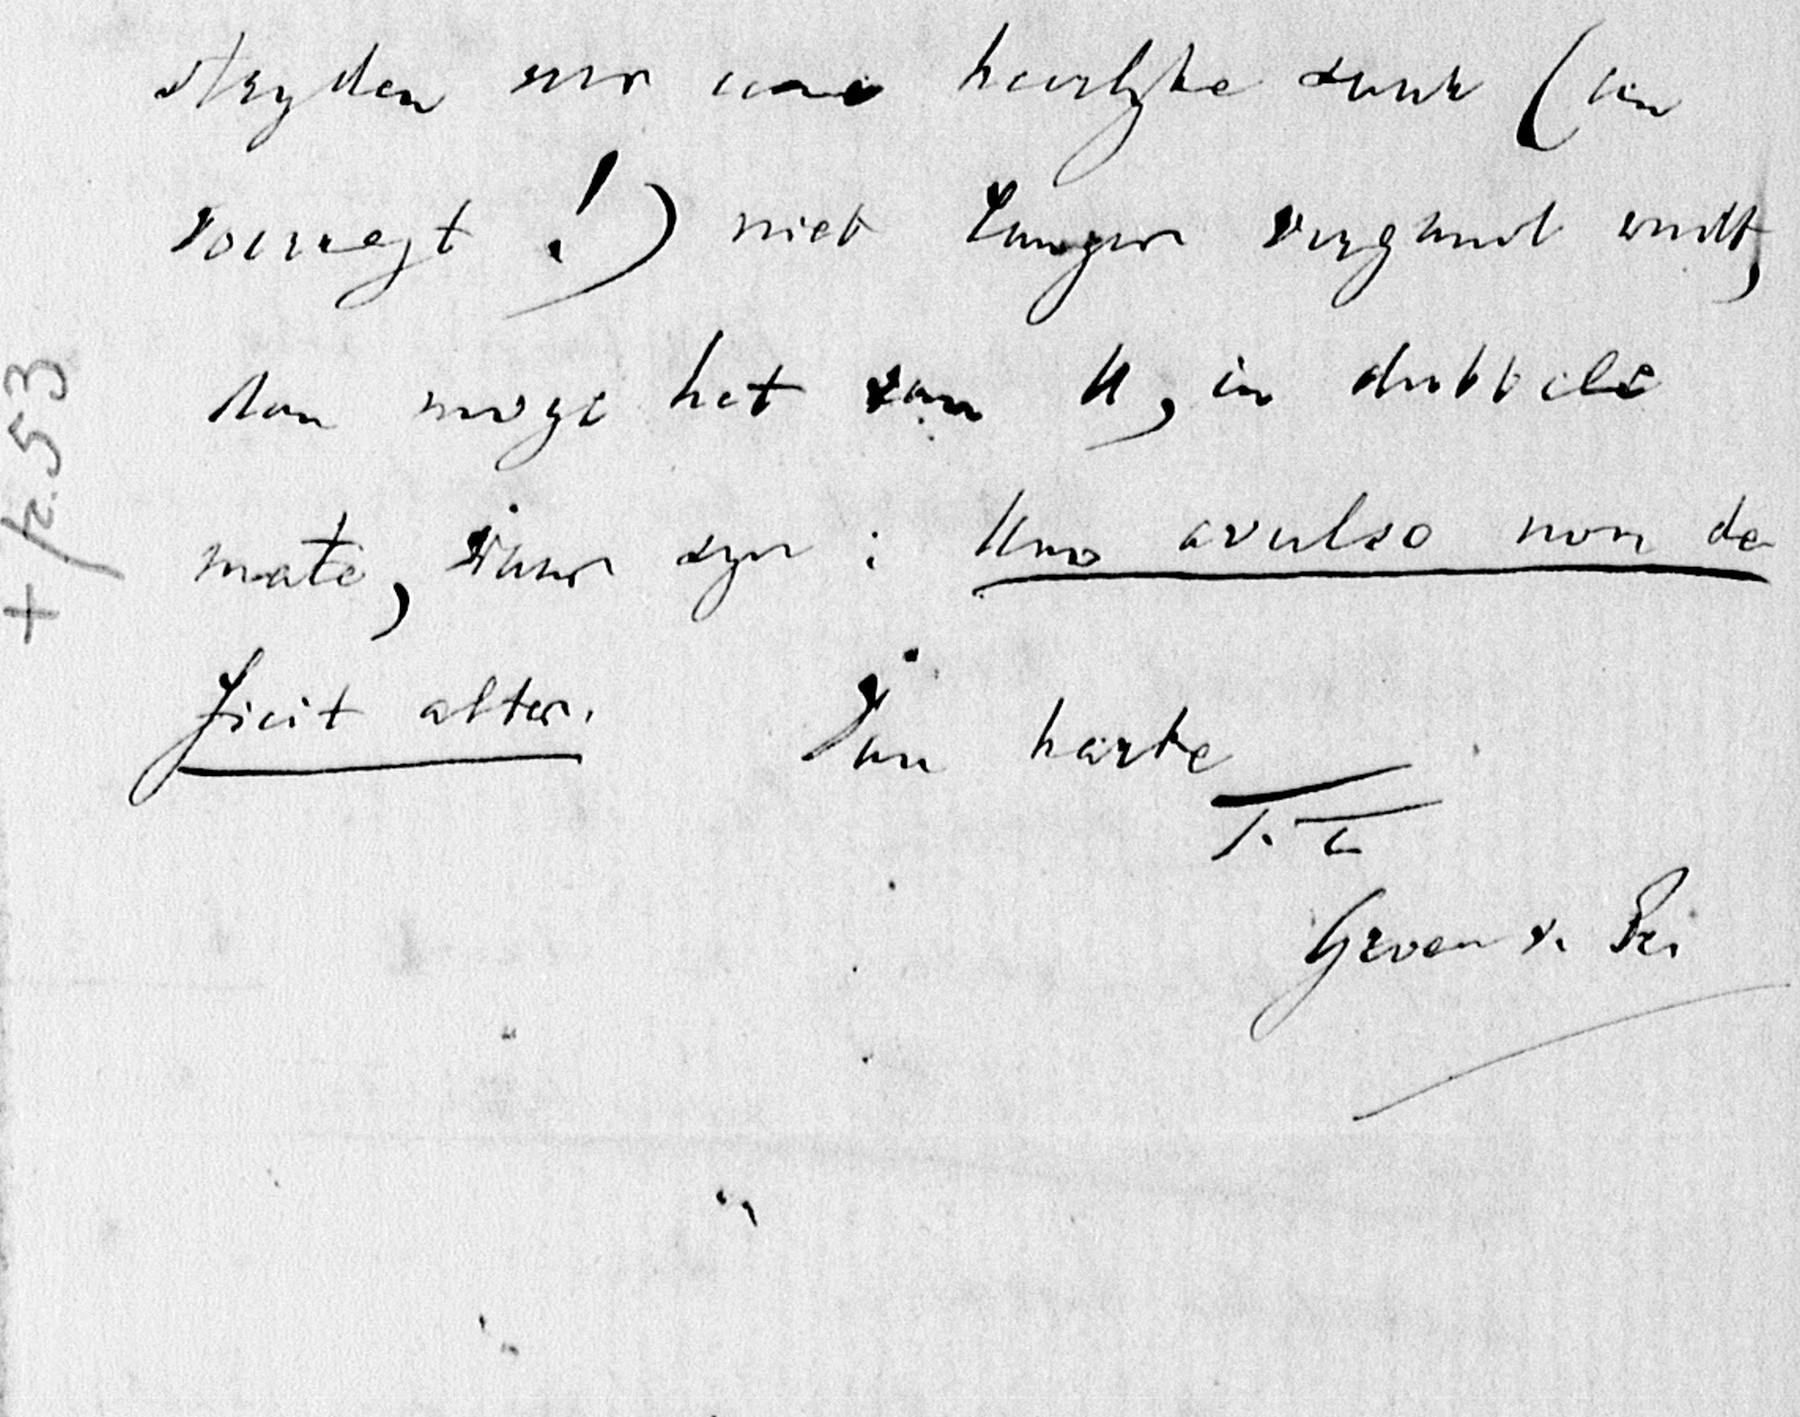 stryden voor eene heerlyke zaak (en
voorregt!) niet langer vergund wordt,
dan moge het van U, in dubbele
mate, waar zyn: Uno avulso non de
ficit alter. Van harte
T. t.
Groen v. Pr.
+ p. 53